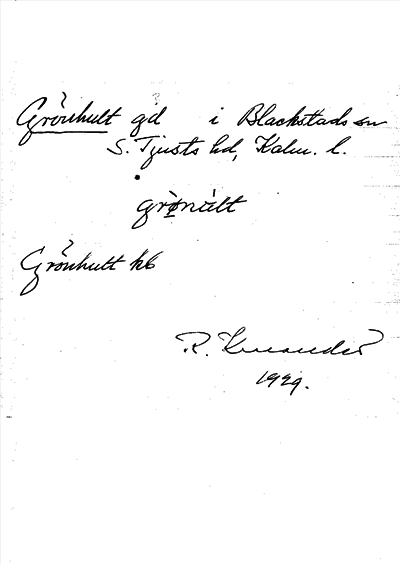 Grönhult gd i Blackstads sn
S. Tjusts hd, Kalm. l.
grø̀núlt
Grönhult kb
R. Knander
1929.